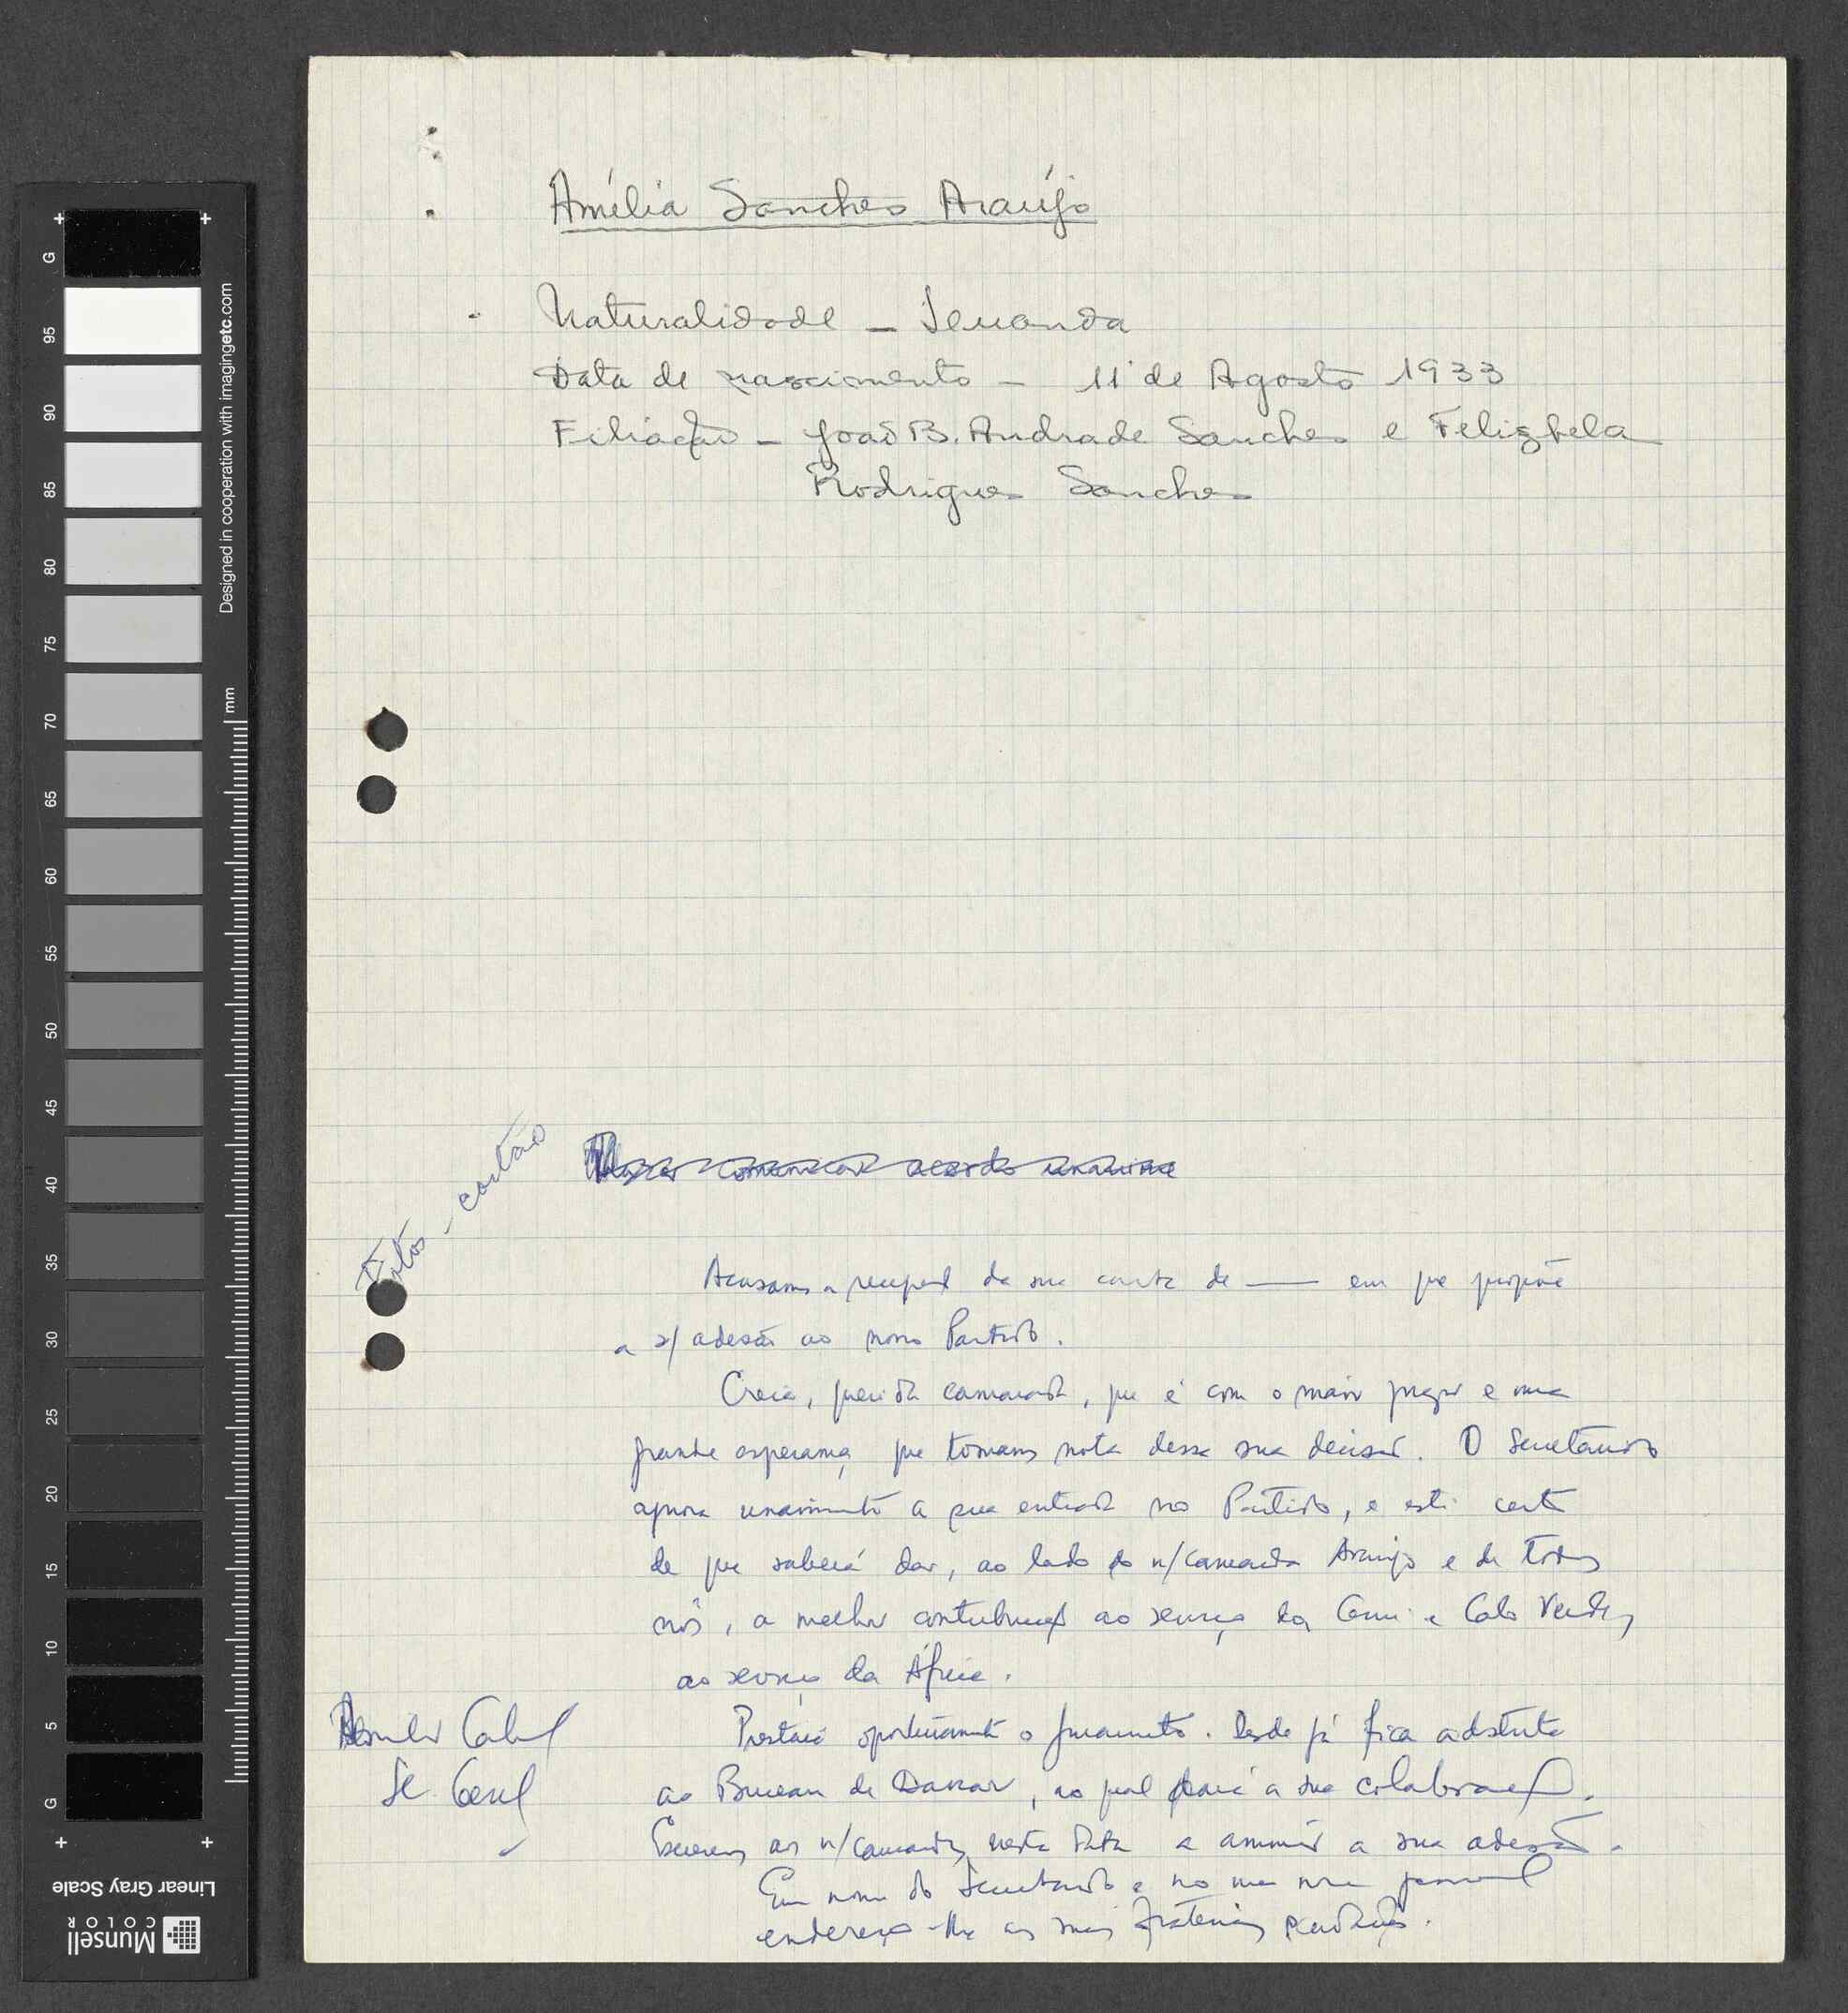 Amélia Sanches Araújo
Naturalidade – Luanda
Data de nascimento – 11 de Agosto 1933
Filiação – João B. Andrade Sanches e Felisbela
Rodrigues Sanches
Fotos – cartão
comunicar acordo unanime
Acusamos a recepção da sua carta de —— em que propõe
a s/ adesão ao nosso Partido.
Creia, querida camarada, que é com o maior prazer e uma
grande esperança que tomamos nota dessa sua decisão. O Secretariado
aprova unanimemente a sua entrada no Partido, e está certo
de que saberá dar, ao lado do n/camarada Araújo e de todos
nós, a melhor contribuição ao serviço da Guiné e Cabo Verde,
ao serviço da África.
Prestará oportunamente o juramento. Desde já fica adstrita
ao Bureau de Dakar, ao qual dará a sua colaboração.
Escrevemos aos n/camaradas nesta data a anunciar a sua adesão.
Em nome do Secretariado e no meu nome pessoal
endereço-lhe as mais fraternais saudações.
Amílcar Cabral
Sec. Geral
G 95 90 85 80 75 70 65 60 55 50 45 40 35 30 25 20 15 10 5 G
mm
Designed in cooperation with imagingetc.com
Linear Gray Scale
Munsell
COLOR